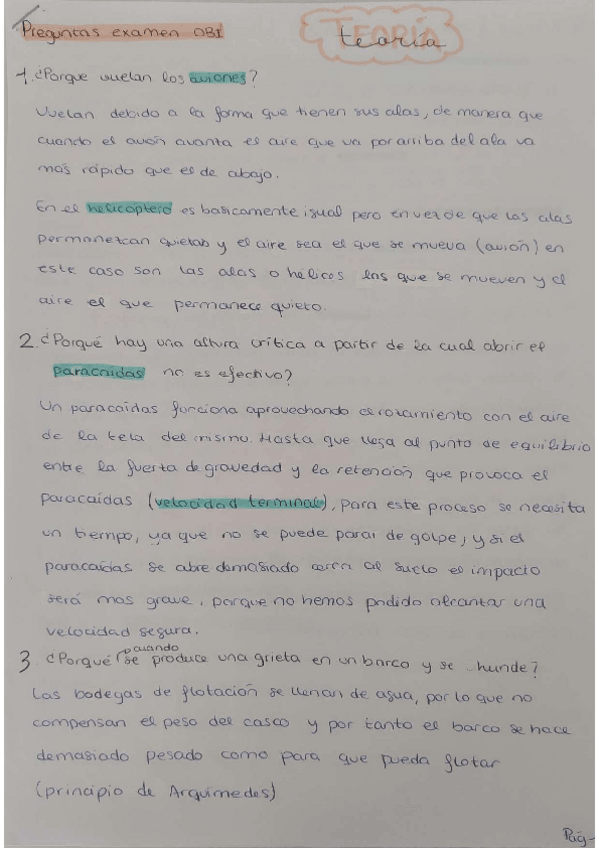 Preguntas examen OBI
TEORÍA
teoría
1. ¿Porque vuelan los aviones?
Vuelan debido a la forma que tienen sus alas, de manera que
cuando el avión avanza el aire que va por arriba del ala va
más rápido que el de abajo.
En el helicóptero es basicamente igual pero en vez de que las alas
permanezcan quietas y el aire sea el que se mueva (avión) en
este caso son las alas o hélices las que se mueven y el
aire el que permanece quieto.
2. ¿Porqué hay una altura crítica a partir de la cual abrir el
paracaídas no es efectivo?
Un paracaídas funciona aprovechando el rozamiento con el aire
de la tela del mismo. Hasta que llega al punto de equilibrio
entre la fuerza de gravedad y la retención que provoca el
paracaídas (velocidad terminal), para este proceso se necesita
un tiempo, ya que no se puede parar de golpe; y si el
paracaídas se abre demasiado cerca al suelo el impacto
será mas grave, porque no hemos podido alcanzar una
velocidad segura.
3. ¿Porqué cuando se produce una grieta en un barco y se hunde?
Las bodegas de flotación se llenan de agua, por lo que no
compensan el peso del casco y por tanto el barco se hace
demasiado pesado como para que pueda flotar
(principio de Arquímedes)
Pág-